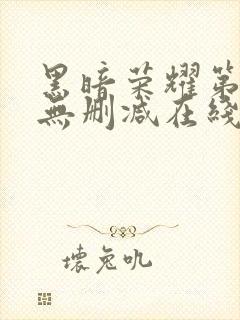 黑暗荣耀第
無删减在綫
壞兔吼